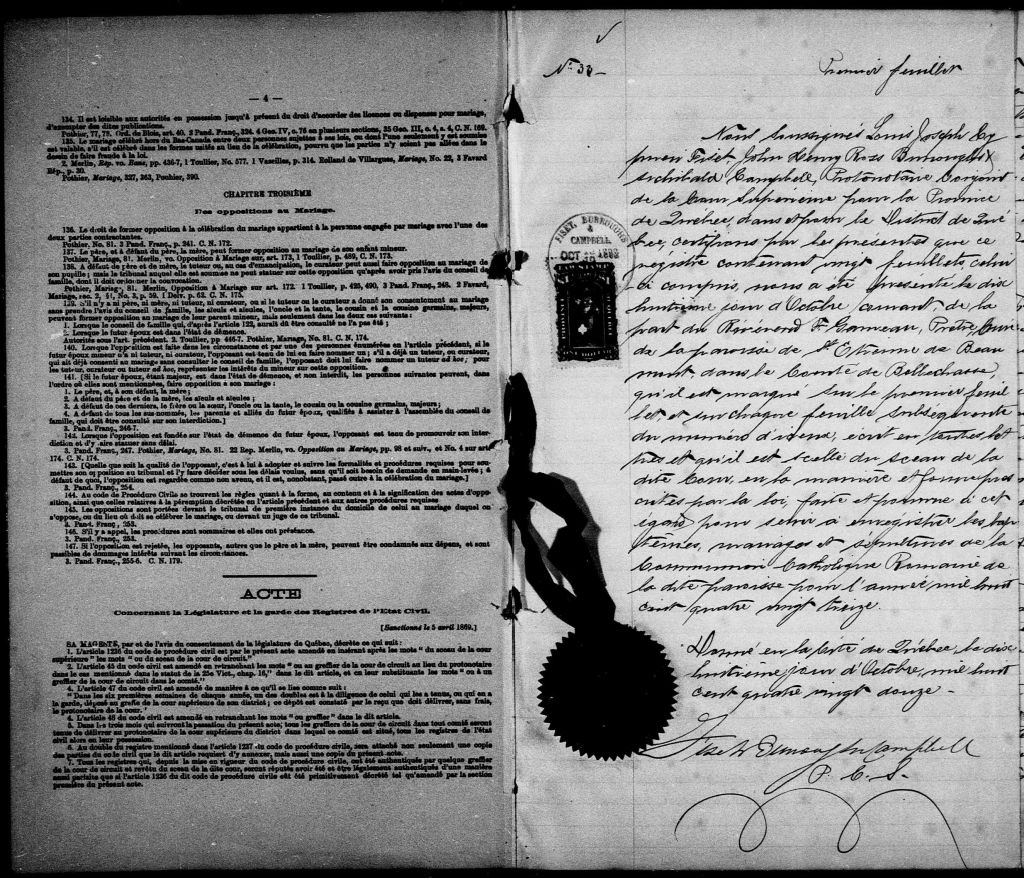 — 4 —
134. Il est loisible aux autorités en possession jusqu'à présent du droit d'accorder des licences ou dispenses pour mariage,
d'exempter des dites publications.
Pothier, 77, 78. Ord. de Blois, art. 40. 2 Pand. Franç., 324. 4 Geo. IV, c. 76 en plusieurs sections, 35 Geo. III, c. 4, s. 4, C. N. 169.
135. Le mariage célébré hors du Bas-Canada entre deux personnes sujettes à ses lois, ou dont l'une seulement y est soumise
est valable, s'il est célébré dans les formes usités au lieu de la célébration, pourvu que les parties n'y soient pas allées dans le
dessin de faire fraude à la loi.
2. Merlin, Rép. vo. Bans, pp. 436-7, 1 Toullier, No. 577. 1 Vazeilles, p. 314. Rolland de Villargues, Mariage, No. 22, 3 Favard
Rép., p. 30.
Pothier, Mariage, 327, 363, Pouhier, 390.
CHAPITRE TROISIÈME
Des oppositions au Mariage.
136. Le droit de former opposition à la célébration du mariage appartient à la personne engagée par mariage avec l'une des
deux parties contractantes.
Pothier, No. 81. 3 Pand. Franç., p. 241. C. N. 172.
137. Le père, et à défaut du père, la mère, peut former opposition au mariage de son enfant mineur.
Pothier, Mariage, 81. Merlin, vo. Opposition à Mariage sur, art. 173, 1 Toullier, p. 489, C. N. 173.
138. A défaut de père et de mère, le tuteur ou, au cas d'émancipation, le curateur peut aussi faire opposition au mariage de
son pupille ; mais le tribunal auquel elle est soumise ne peut statuer sur cette opposition qu'après avoir pris l'avis du conseil de
famille, dont il doit ordonner la convocation.
Pothier, Mariage, 81. Merlin, Opposition à Mariage sur art. 172. 1 Toullier, p. 425, 490, 3 Pand. Franç., 245. 2 Favard,
Mariage, sec. 2, §1, No. 3, p. 59. 1 Delv. p. 62. C. N. 175.
139. S'il n'y a ni père, ni mère, ni tuteur, ni curateur, ou si le tuteur ou le curateur a donné son consentement au mariage
sans prendre l'avis du conseil de famille, les aïeuls et aïeules, l'oncle et la tante, le cousin et la cousine germains, majeurs,
peuvent former opposition au mariage de leur parent mineur, mais seulement dans les deux cas suivants :
1. Lorsque le conseil de famille qui, d'après l'article 122, aurait dû être consulté ne l'a pas été ;
2. Lorsque le futur époux est dans l'état de démence.
Autorités sous l'art. précédent. 2 Toullier, pp 446-7. Pothier, Mariage, No. 81. C. N. 174.
140. Lorsque l'opposition est faite dans les circonstances et par une des personnes énumérées en l'article précédent, si le
futur époux mineur n'a ni tuteur, ni curateur, l'opposant est tenu de lui en faire nommer un ; s'il a déjà un tuteur, ou curateur,
qui ait déjà consenti au mariage sans consulter le conseil de famille, l'opposant doit lui faire nommer un tuteur ad hoc ; pour
les tuteur, curateur ou tuteur ad hoc, représenter les intérêts du mineur sur cette opposition.
141. [Si le futur époux, étant majeur, est dans l'état de démence, et non interdit, les personnes suivantes peuvent, dans
l'ordre où elles sont mentionnées, faire opposition à son mariage :
1. Le père, et, à son défaut, la mère ;
2. A défaut du père et de la mère, les aïeuls et aïeules ;
3. A défaut de ces derniers, le frère ou la sœur, l'oncle ou la tante, le cousin ou la cousine germains, majeurs ;
4. A défaut de tous les sus-nommés, les parents et alliés du futur époux, qualifiés à assister à l'assemblée du conseil de
famille, qui doit être consulté sur son interdiction.]
3. Pand. Franç., 246-7.
142. Lorsque l'opposition est fondée sur l'état de démence du futur époux, l'opposant est tenu de promouvoir son inter-
diction et d'y faire statuer sans délai.
3. Pand. Franç., 247. Pothier, Mariage, No. 81. 22 Rep. Merlin, vo. Opposition au Mariage, pp. 98 et suiv., et No. 4 sur art.
174. C. N. 174.
143. [Quelle que soit la qualité de l'opposant, c'est à lui à adopter et suivre les formalités et procédures requises pour sou-
mettre son opposition au tribunal et l'y faire décider sous les délais voulus, sans qu'il soit besoin de demande en main-levée ; à
défaut de quoi, l'opposition est regardée comme non avenu, et il est, nonobstant, passé outre à la célébration du mariage.]
3. Pand. Franç., 254.
144. Au code de Procédure Civile se trouvent les règles quant à la forme, au contenu et à la signification des actes d'oppo-
sition, ainsi que celles relatives à la péremption décrétée en l'article précédent et aux autres procédures requises
145. Les oppositions sont portées devant le tribunal de première instance du domicile de celui au mariage duquel on
s'oppose, ou du lieu où doit se célébrer le mariage, ou devant un juge de ce tribunal.
3. Pand. Franç., 253.
146. S'il y a appel, les procédures sont sommaires et elles ont préséance.
3. Pand. Franç., 253.
147. Si l'opposition est rejetée, les opposants, autres que le père et la mère, peuvent être condamnés aux dépens, et sont
passibles de dommages intérêts suivant les circonstances.
3. Pand. Franç., 255-6. C. N. 179.
ACTE
Concernant la Législature et la garde des Registres de l'Etat Civil.
[Sanctionné le 5 avril 1869.]
SA MAGESTE, par et de l'avis du consentement de la législature de Québec, décrète ce qui suit :
1. L'article 1236 du code de procédure civile est par le présent acte amendé en insérant après les mots "du sceau de la cour
supérieure" les mots "ou du sceau de la cour de circuit."
2. L'article 45 du code civil est amendé en retranchant les mots "ou au greffier de la cour du circuit au lieu du protonotaire
dans le cas mentionné dans le statut de la 25e Vict., chap. 16," dans le dit article, et en leur substituants les mots "ou à un
greffier de la cour de circuit dans le comté."
4. L'article 47 du code civil est amendé de manière à ce qu'il se lise comme suit :
"Dans les six premières semaines de chaque année, un des doubles est à la diligence de celui qui les a tenus, ou qui en a
la garde, déposé au greffe de la cour supérieure de son district ; ce dépôt est constaté par le reçu que doit délivrer, sans frais,
le protonotaire de la cour."
4. L'article 48 du code civil est amendé en retranchant les mots "ou greffier" dans le dit article.
5. Dans les trois mois qui suivront la passation du présent acte, tous les greffiers de la cour de circuit dans tout comté seront
tenus de délivrer au protonotaire de la cour supérieure du district dans lequel ce comté est situé, tous les registres de l'état
civil alors en leur possession.
6. Au double du registre mentionné dans l'article 1237 du code de procédure civile, sera attaché non seulement une copie
des parties du code civil que le dit article requiert d'y annexer, mais aussi une copie du présent acte.
7. Tous les registres qui, depuis la mise en vigueur du code de procédure civile, ont été authentiqués par quelque greffier
de la cour de circuit et revêtu du sceau de la dite cour, seront réputés avoir été et être légalement authentiqués d'une manière
aussi parfaite que si l'article 1236 du dit code de procédure civile eût été primitivement décrété tel qu'amendé par la section
première du présent acte.
No 33 —
Premier feuillet
FISET, BURROUGHS
&
CAMPBELL
OCT 18 1892
Nous Soussignés Louis Joseph Cy
prien Fiset, John Henry Ross Burroughs &
Archibald Campbell, Protonotaire Conjoint
de la Cour Supérieure pour la Province
de Québec, dans et pour le District de Qué
bec, certifions par les présentes que ce
registre contenant vingt feuillets, celui
ci compris, nous a été présenté le dix
huitième jour d'Octobre courant, de la
part du Révérend F. Garneau, Prêtre Curé
de la paroisse de St Etienne de Beau
mont, dans le Comté de Bellechasse,
qu'il est marqué sur le premier feuil
let et sur chaque feuille subséquente
du numéro d'iceux, écrit en toutes let
tres et qu'il est scellé du sceau de la
dite Cour, en la manière et forme pres
crites par la loi, faite et pourvue à cet
égard, pour servir à enregistrer les bap
têmes, mariages et sépultures de la
Communion Catholique Romaine de
la dite paroisse pour l'année mil huit
cent quatre vingt treize.
Donné en la Cité de Québec, le dix
huitième jour d'Octobre, mil huit
cent quatre vingt douze —
Fiset Burroughs Campbell
P. C. S.